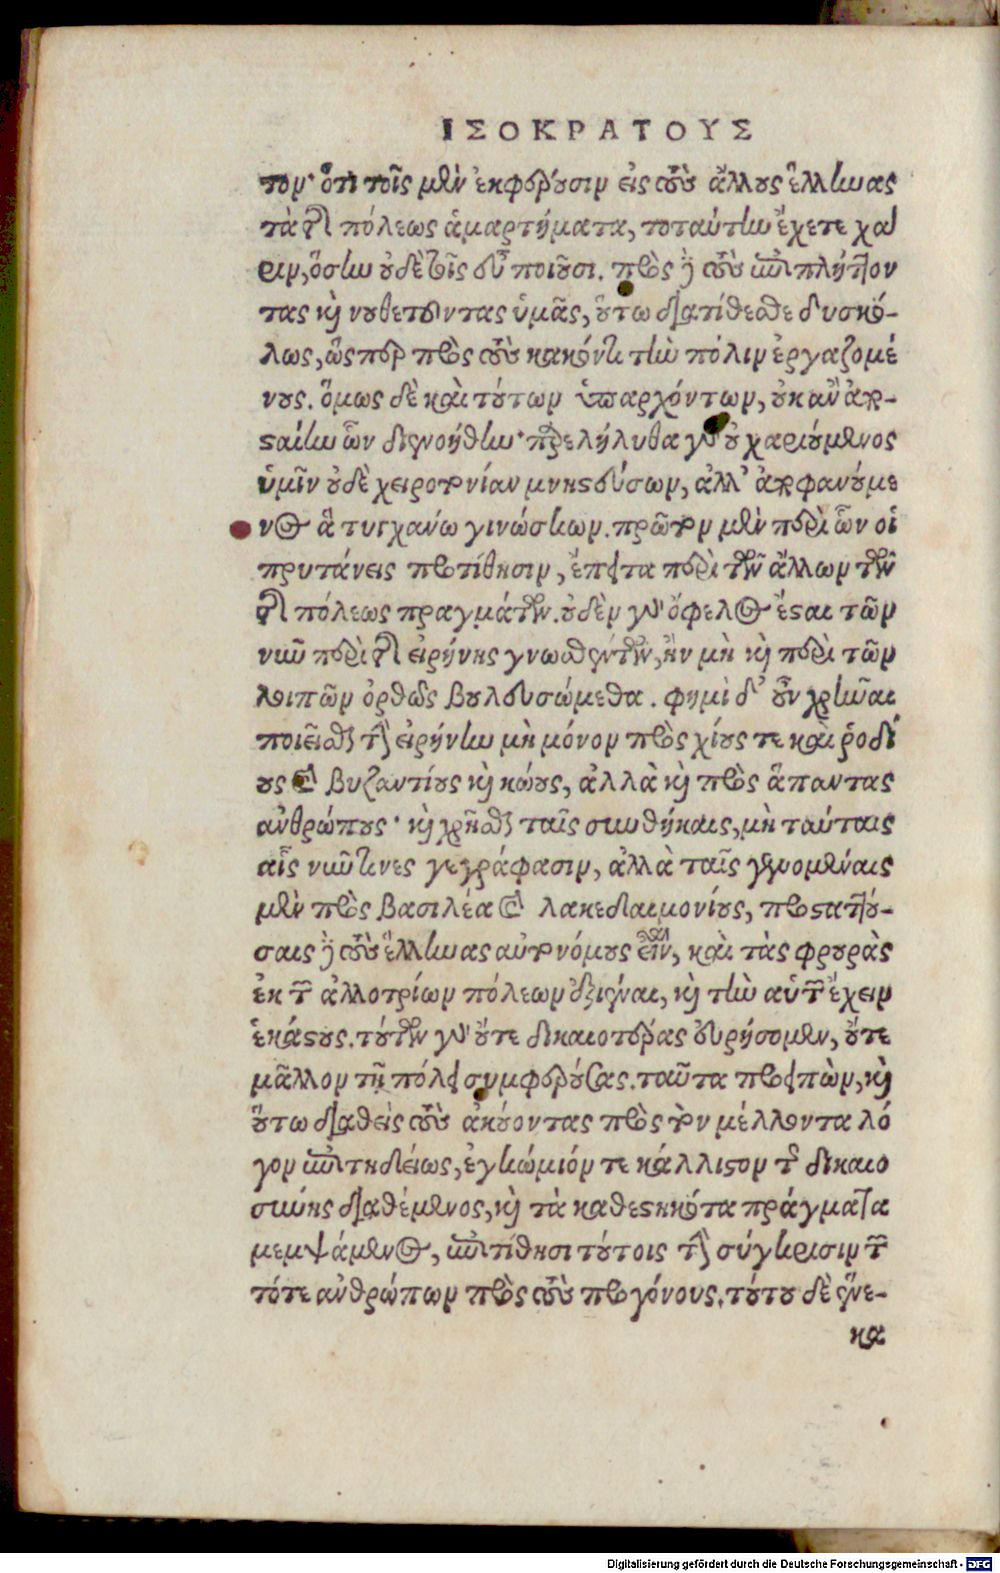 ΙΣΟΚΡΑΤΟΥΣ
τον· ὅτι τοῖς μὲν ἐκφέρουσιν εἰς τοὺς ἄλλους ἕλληνας
τὰ τῆς πόλεως ἁμαρτήματα, τοσαύτην ἔχετε χά
ριν, ὅσην οὐδὲ τοῖς εὖ ποιοῦσι. πρὸς δὲ τοὺς ἐπιπλήττον
τας καὶ νουθετοῦντας ὑμᾶς, οὕτω διατίθεσθε δυσκό-
λως, ὥσπερ πρὸς τοὺς κακόν τι τὴν πόλιν ἐργαζομέ
νους. ὅμως δὲ καὶ τούτων ὑπαρχόντων, οὐκ ἂν ἀπο-
σταίην ὧν διενοήθην· παρελήλυθα γὰρ οὐ χαριούμενος
ὑμῖν οὐδὲ χειροτονίαν μνηστεύσων, ἀλλ' ἀποφανούμε
νος ἃ τυγχάνω γινώσκων. πρῶτον μὲν περὶ ὧν οἱ
πρυτάνεις προτίθησιν, ἔπειτα περὶ τῶν ἄλλων τῶν
τῆς πόλεως πραγμάτων. οὐδὲν γὰρ ὄφελος ἔσται τῶν
νῦν περὶ τῆς εἰρήνης γνωσθέντων, ἢν μὴ καὶ περὶ τῶν
λοιπῶν ὀρθῶς βουλευσώμεθα. φημὶ δ' οὖν χρῆναι
ποιεῖσθαι τὴν εἰρήνην μὴ μόνον πρὸς χίους τε καὶ ῥοδί
ους καὶ βυζαντίους καὶ κώους, ἀλλὰ καὶ πρὸς ἅπαντας
ἀνθρώπους· καὶ χρῆσθαι ταῖς συνθήκαις, μὴ ταύταις
αἷς νῦν τινες γεγράφασιν, ἀλλὰ ταῖς γενομέναις
μὲν πρὸς βασιλέα καὶ λακεδαιμονίους, προσταττού-
σαις δὲ τοὺς ἕλληνας αὐτονόμους εἶναι, καὶ τὰς φρουρὰς
ἐκ τῶν ἀλλοτρίων πόλεων ἐξιέναι, καὶ τὴν αὑτῶν ἔχειν
ἑκάστους. τούτων γὰρ οὔτε δικαιοτέρας εὑρήσομεν, οὔτε
μᾶλλον τῇ πόλει συμφερούσας. ταῦτα προειπὼν, καὶ
οὕτω διαθεὶς τοὺς ἀκούοντας πρὸς τὸν μέλλοντα λό
γον ἐπιτηδείως, ἐγκώμιόν τε κάλλιστον τῆς δικαιο
σύνης διαθέμενος, καὶ τὰ καθεστηκότα πράγματα
μεμψάμενος, ἐπιτίθησι τούτοις τὴν σύγκρισιν τῶν
τότε ἀνθρώπων πρὸς τοὺς προγόνους. τούτου δὲ ἕνε-
κα
Digitalisierung gefördert durch die Deutsche Forschungsgemeinschaft - DFG